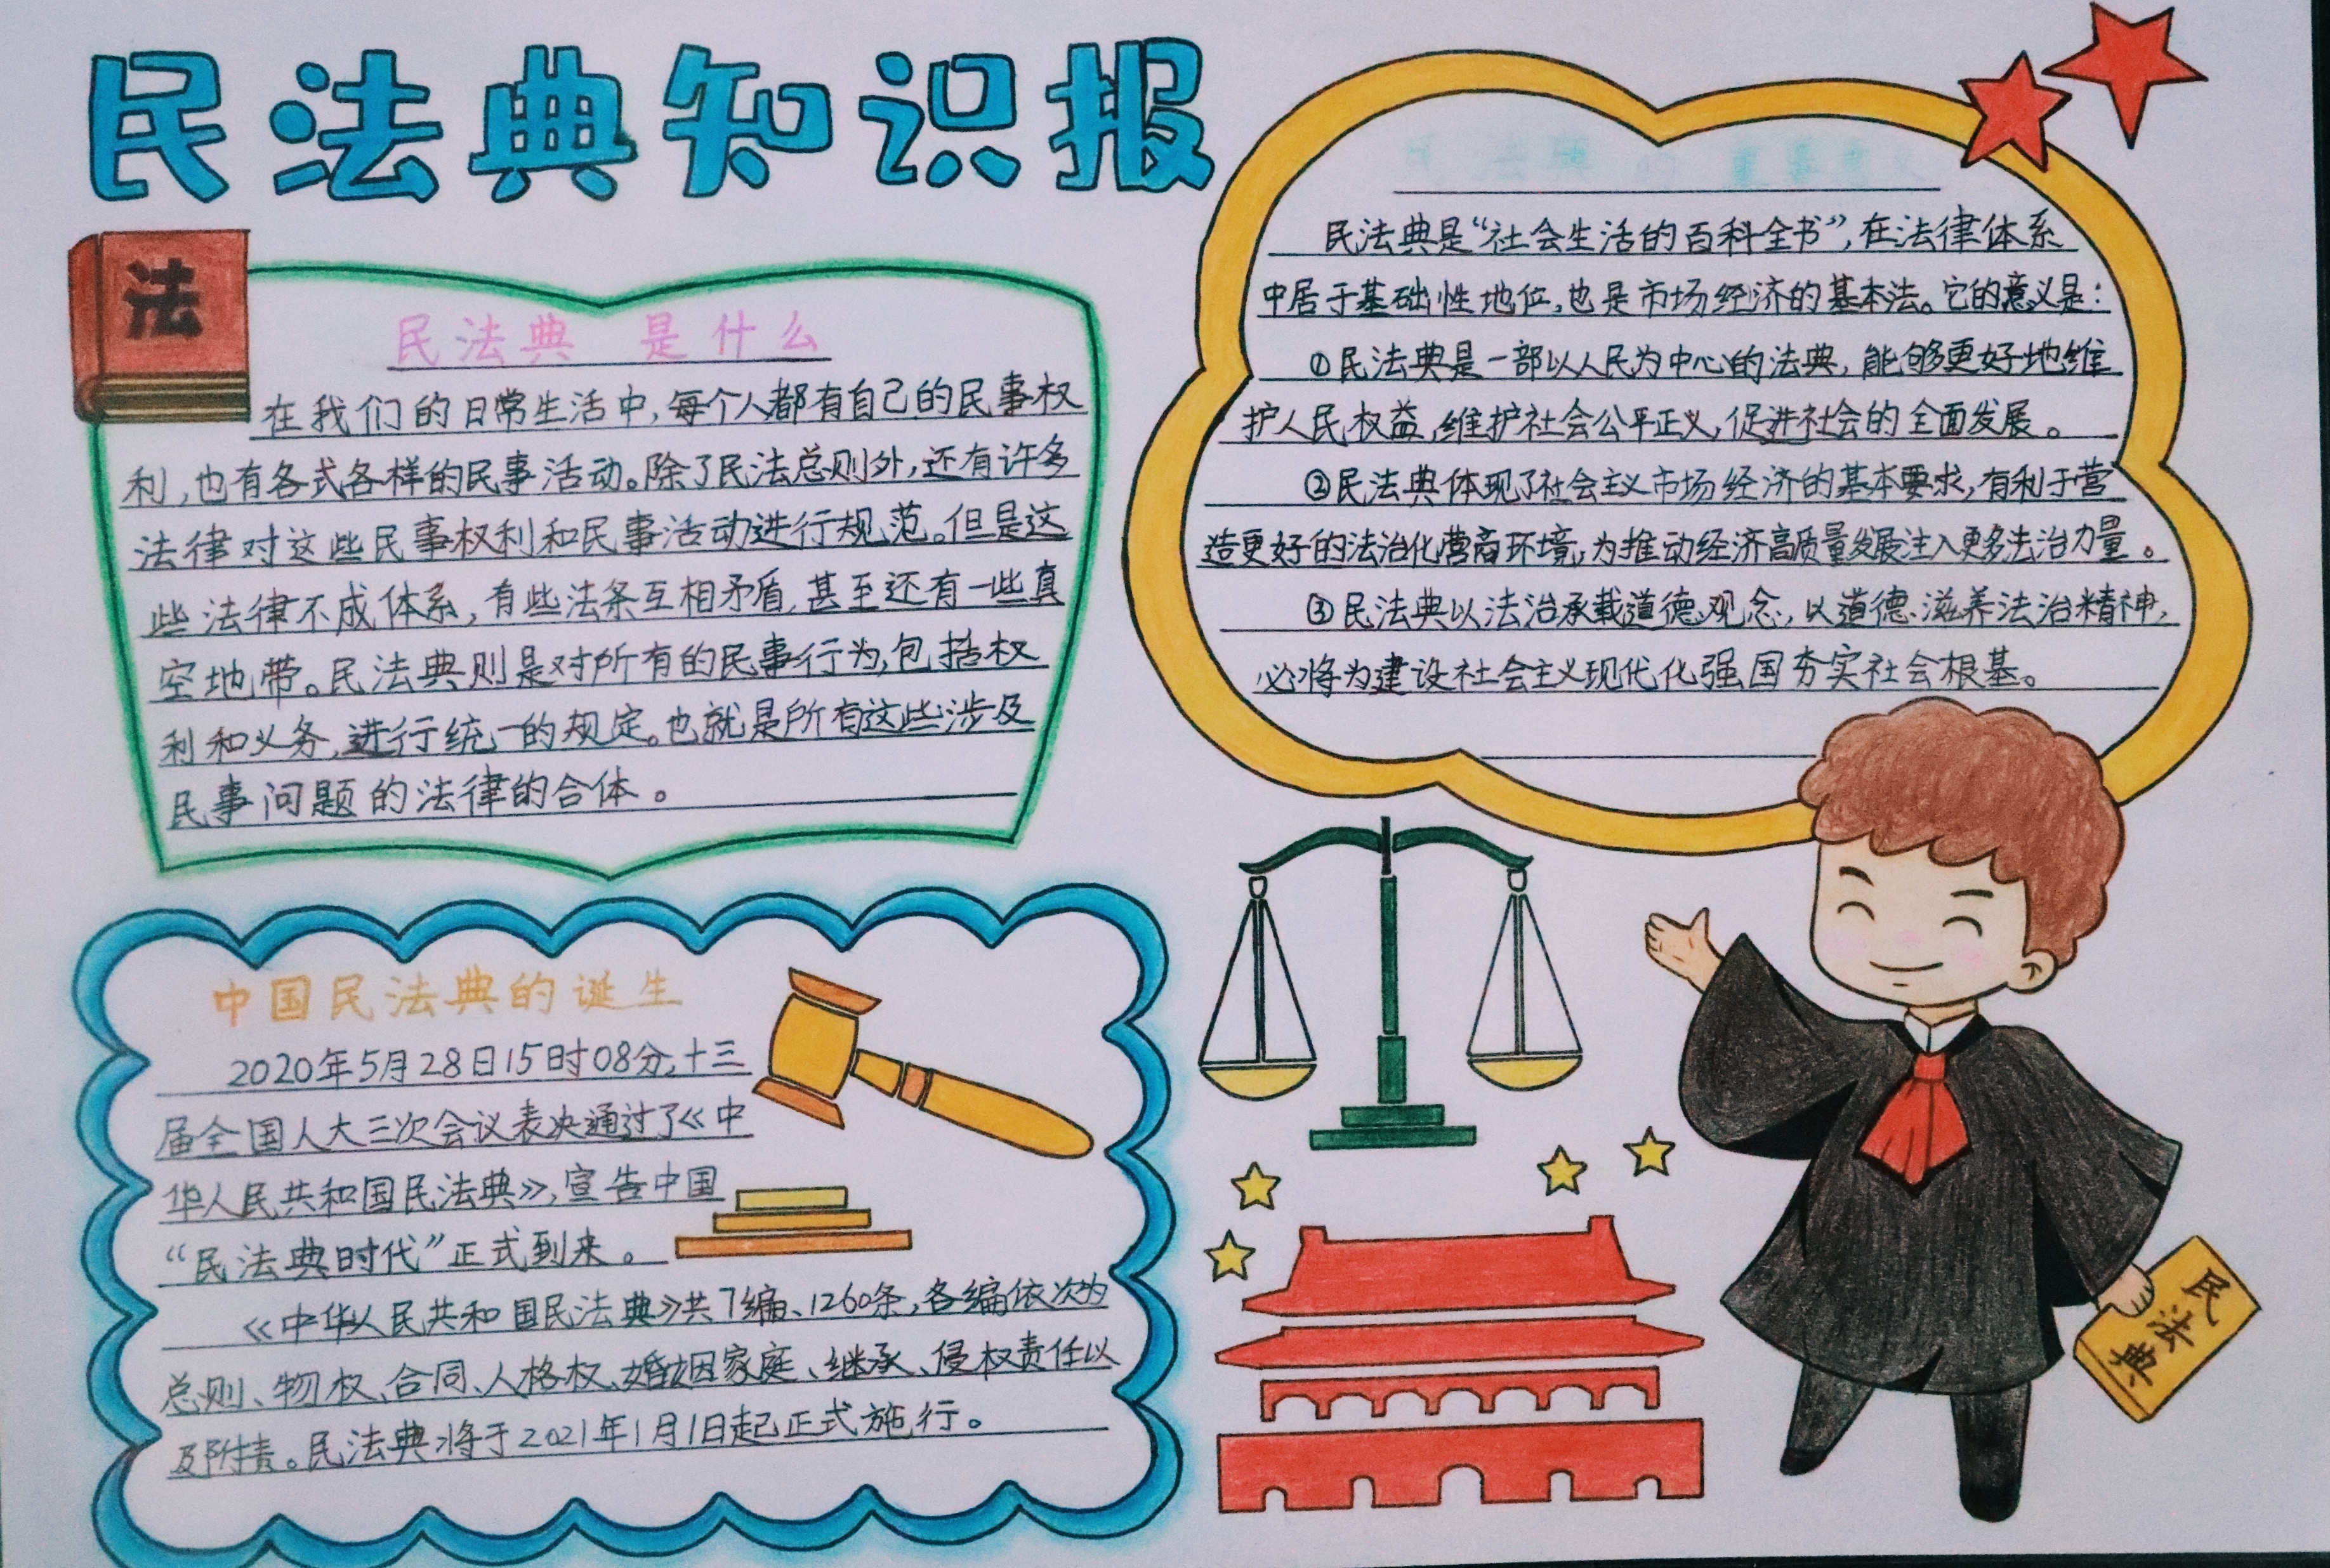 民法典知识报
法
民法典 是什么
在我们的日常生活中,每个人都有自己的民事权
利,也有各式各样的民事活动。除了民法总则外,还有许多
法律对这些民事权利和民事活动进行规范。但是这
些法律不成体系,有些法条互相矛盾,甚至还有一些真
空地带。民法典则是对所有的民事行为,包括权
利和义务,进行统一的规定。也就是所有这些涉及
民事问题的法律的合体。
中国民法典的诞生
2020年5月28日15时08分,十三
届全国人大三次会议表决通过了《中
华人民共和国民法典》,宣告中国
“民法典时代”正式到来。
《中华人民共和国民法典》共7编、1260条,各编依次为
总则、物权、合同、人格权、婚姻家庭、继承、侵权责任以
及附责。民法典将于2021年1月1日起正式施行。
民法典的重要意义
民法典是“社会生活的百科全书”,在法律体系
中居于基础性地位,也是市场经济的基本法。它的意义是:
①民法典是一部以人民为中心的法典,能够更好地维
护人民权益,维护社会公平正义,促进社会的全面发展。
②民法典体现了社会主义市场经济的基本要求,有利于营
造更好的法治化营商环境,为推动经济高质量发展注入更多法治力量。
③民法典以法治承载道德观念,以道德滋养法治精神,
必将为建设社会主义现代化强国夯实社会根基。
民法典